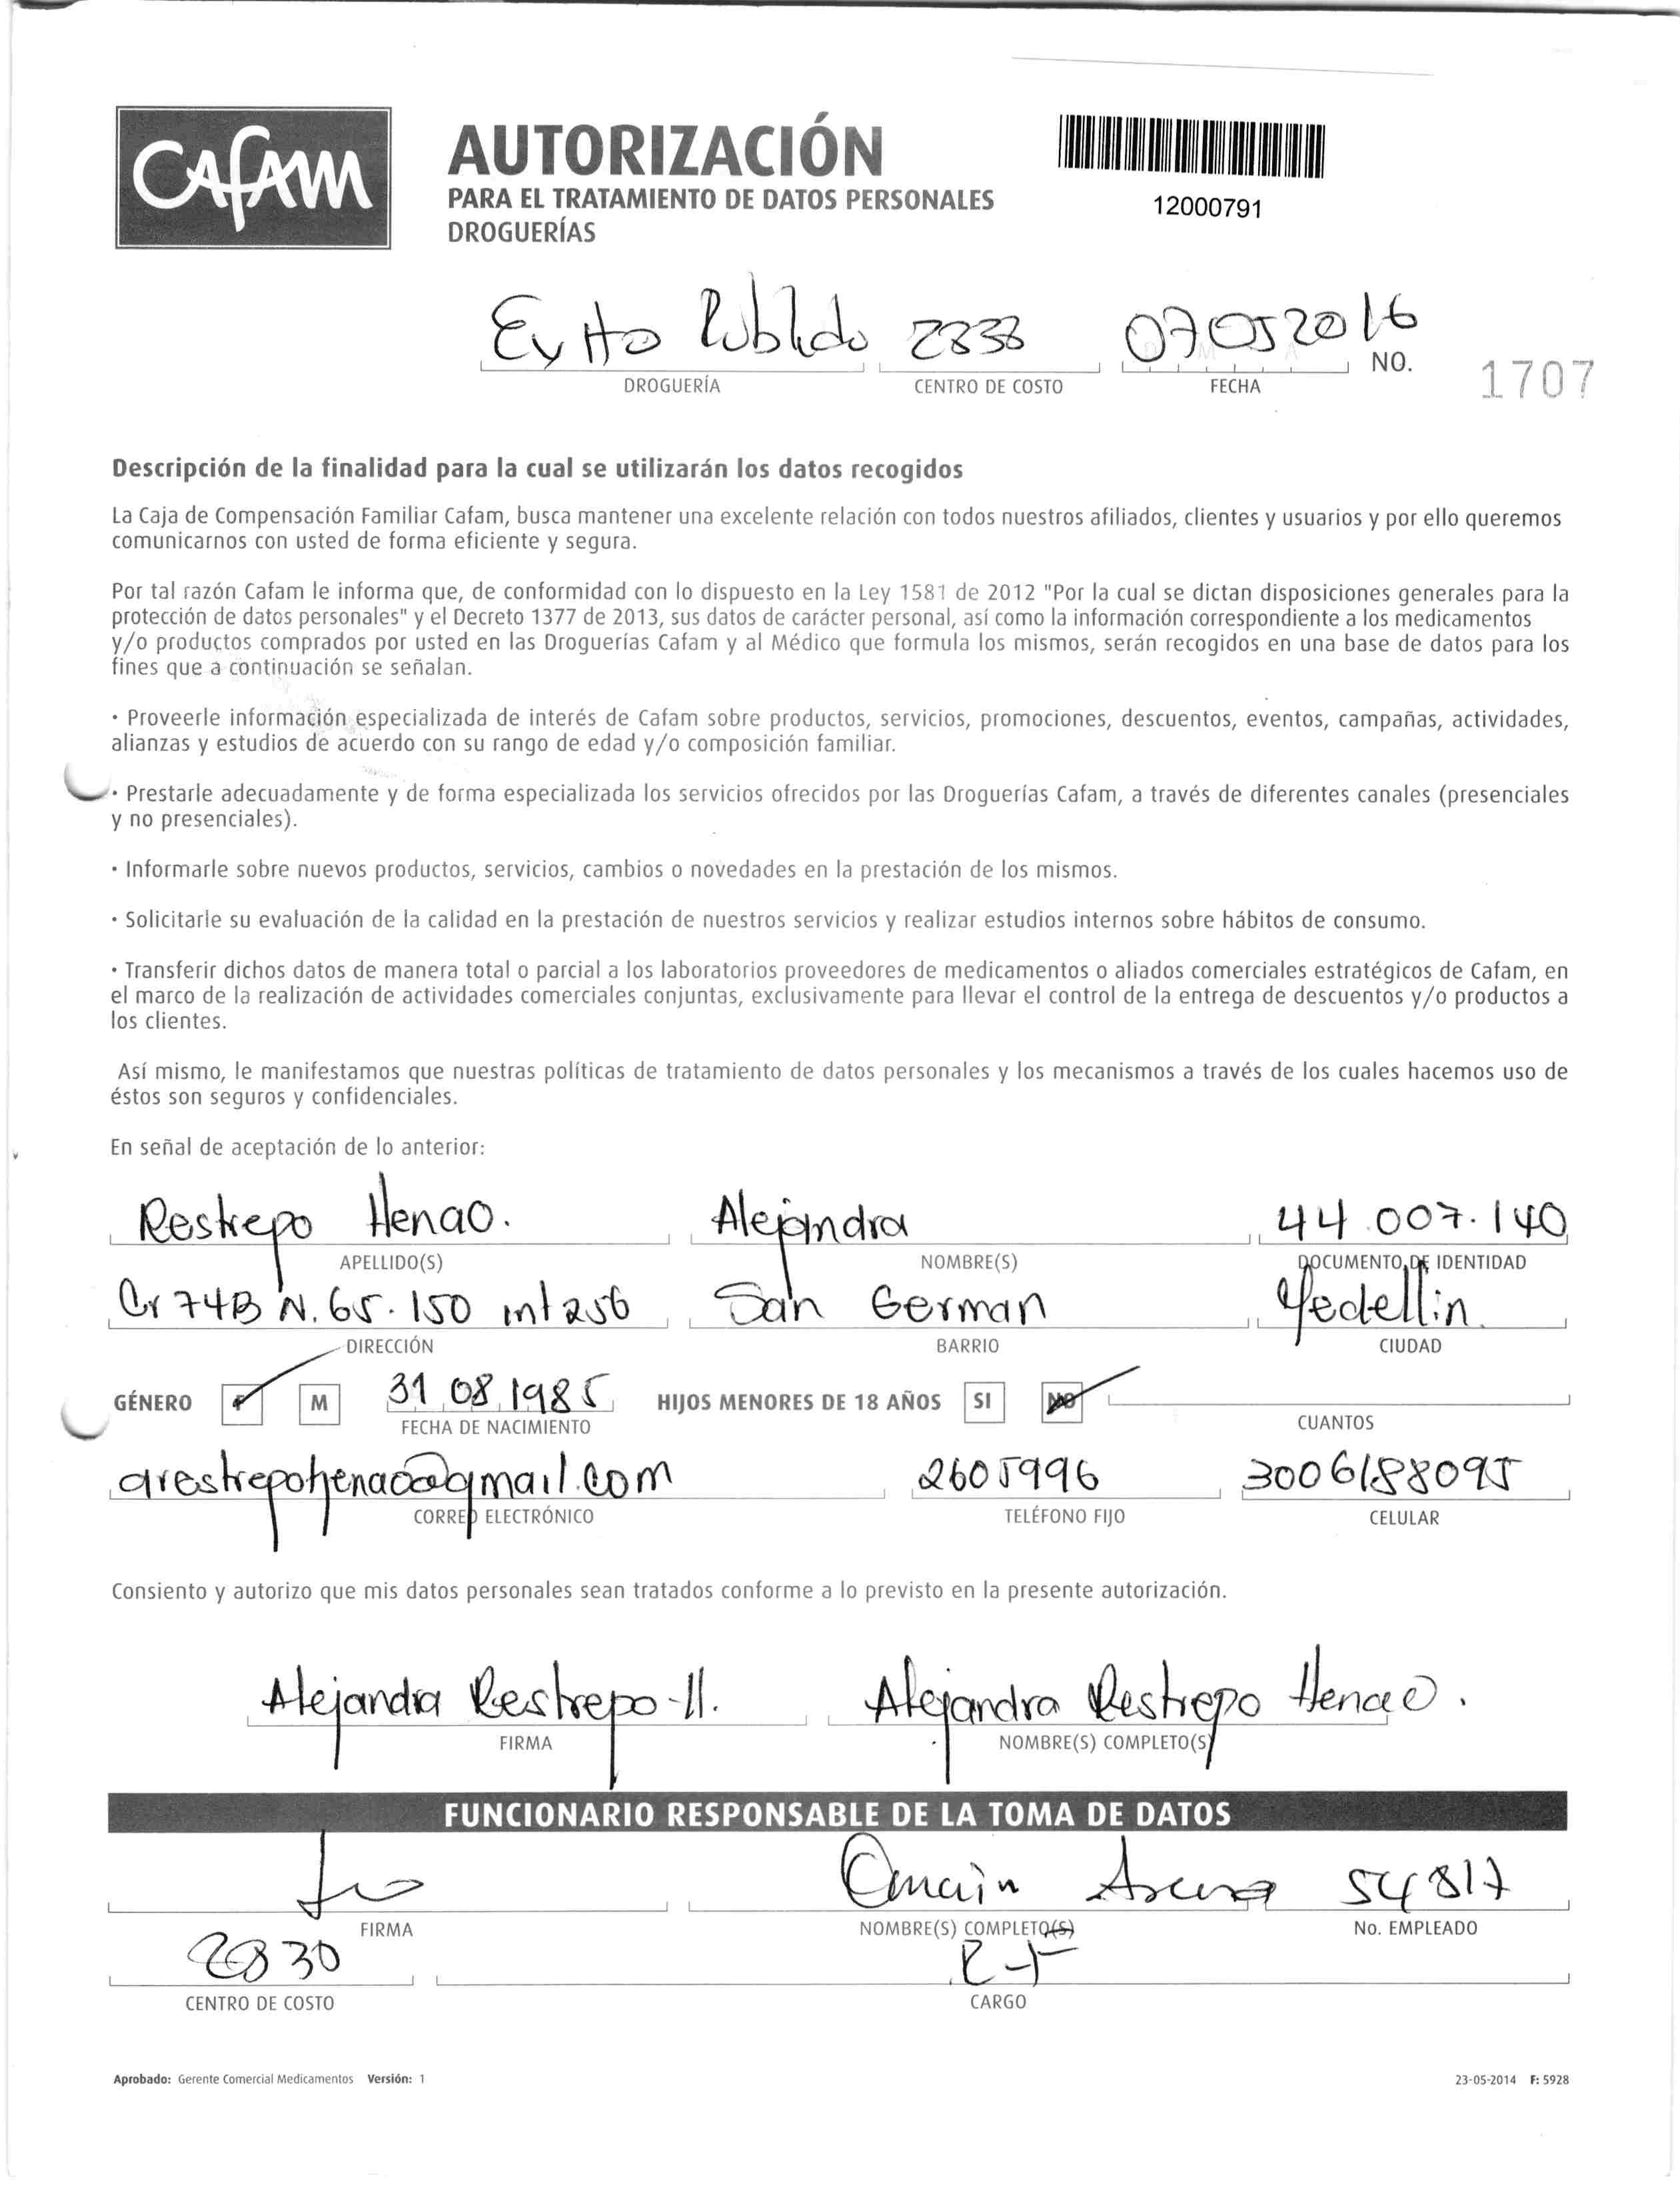 CAFAM
AUTORIZACIÓN
PARA EL TRATAMIENTO DE DATOS PERSONALES
DROGUERÍAS
12000791
Exito 07052016
DROGUERÍA CENTRO DE COSTO FECHA NO. 1707
Descripción de la finalidad para la cual se utilizarán los datos recogidos
La Caja de Compensación Familiar Cafam, busca mantener una excelente relación con todos nuestros afiliados, clientes y usuarios y por ello queremos
comunicarnos con usted de forma eficiente y segura.
Por tal razón Cafam le informa que, de conformidad con lo dispuesto en la Ley 1581 de 2012 "Por la cual se dictan disposiciones generales para la
protección de datos personales" y el Decreto 1377 de 2013, sus datos de carácter personal, así como la información correspondiente a los medicamentos
y/o productos comprados por usted en las Droguerías Cafam y al Médico que formula los mismos, serán recogidos en una base de datos para los
fines que a continuación se señalan.
• Proveerle información especializada de interés de Cafam sobre productos, servicios, promociones, descuentos, eventos, campañas, actividades,
alianzas y estudios de acuerdo con su rango de edad y/o composición familiar.
• Prestarle adecuadamente y de forma especializada los servicios ofrecidos por las Droguerías Cafam, a través de diferentes canales (presenciales
y no presenciales).
• Informarle sobre nuevos productos, servicios, cambios o novedades en la prestación de los mismos.
• Solicitarle su evaluación de la calidad en la prestación de nuestros servicios y realizar estudios internos sobre hábitos de consumo.
• Transferir dichos datos de manera total o parcial a los laboratorios proveedores de medicamentos o aliados comerciales estratégicos de Cafam, en
el marco de la realización de actividades comerciales conjuntas, exclusivamente para llevar el control de la entrega de descuentos y/o productos a
los clientes.
Así mismo, le manifestamos que nuestras políticas de tratamiento de datos personales y los mecanismos a través de los cuales hacemos uso de
éstos son seguros y confidenciales.
En señal de aceptación de lo anterior:
Restrepo Henao. Alejandra 44.007.140
APELLIDO(S) NOMBRE(S) DOCUMENTO DE IDENTIDAD
Cr 74B N. 65-150 int 256 San German Medellin.
DIRECCIÓN BARRIO CIUDAD
GÉNERO F M 31 08 1985 HIJOS MENORES DE 18 AÑOS SI NO
FECHA DE NACIMIENTO CUANTOS
arestrepohenao@gmail.com 2605996 3006188095
CORREO ELECTRÓNICO TELÉFONO FIJO CELULAR
Consiento y autorizo que mis datos personales sean tratados conforme a lo previsto en la presente autorización.
Alejandra Restrepo H. Alejandra Restrepo Henao.
FIRMA NOMBRE(S) COMPLETO(S)
FUNCIONARIO RESPONSABLE DE LA TOMA DE DATOS
54817
FIRMA NOMBRE(S) COMPLETO(S) No. EMPLEADO
2830
CENTRO DE COSTO CARGO
Aprobado: Gerente Comercial Medicamentos Versión: 1 23-05-2014 F: 5928